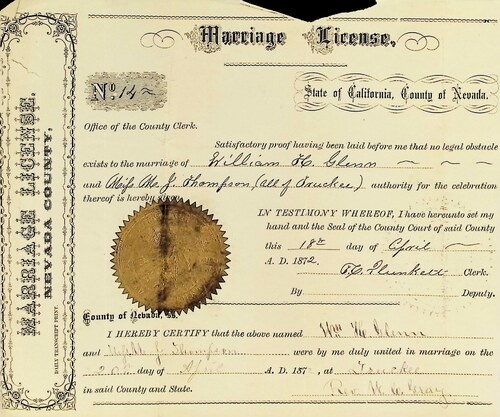 Marriage License,
MARRIAGE LICENSE.
NEVADA COUNTY.
DAILY TRANSCRIPT PRINT.
No. 14
State of California, County of Nevada.
Office of the County Clerk.
Satisfactory proof having been laid before me that no legal obstacle
exists to the marriage of William H. Glenn
and Miss M. J. Thompson, (All of Truckee,) authority for the celebration
thereof is hereby
IN TESTIMONY WHEREOF, I have hereunto set my
hand and the Seal of the County Court of said County
this 18th day of April
A. D. 1872.
T. C. Plunkett Clerk.
By Deputy.
County of Nevada, ss.
I HEREBY CERTIFY that the above named Wm H. Glenn
and M J Thompson were by me duly united in marriage on the
day of April A. D. 187 , at Truckee
in said County and State.
Rev. Gray.